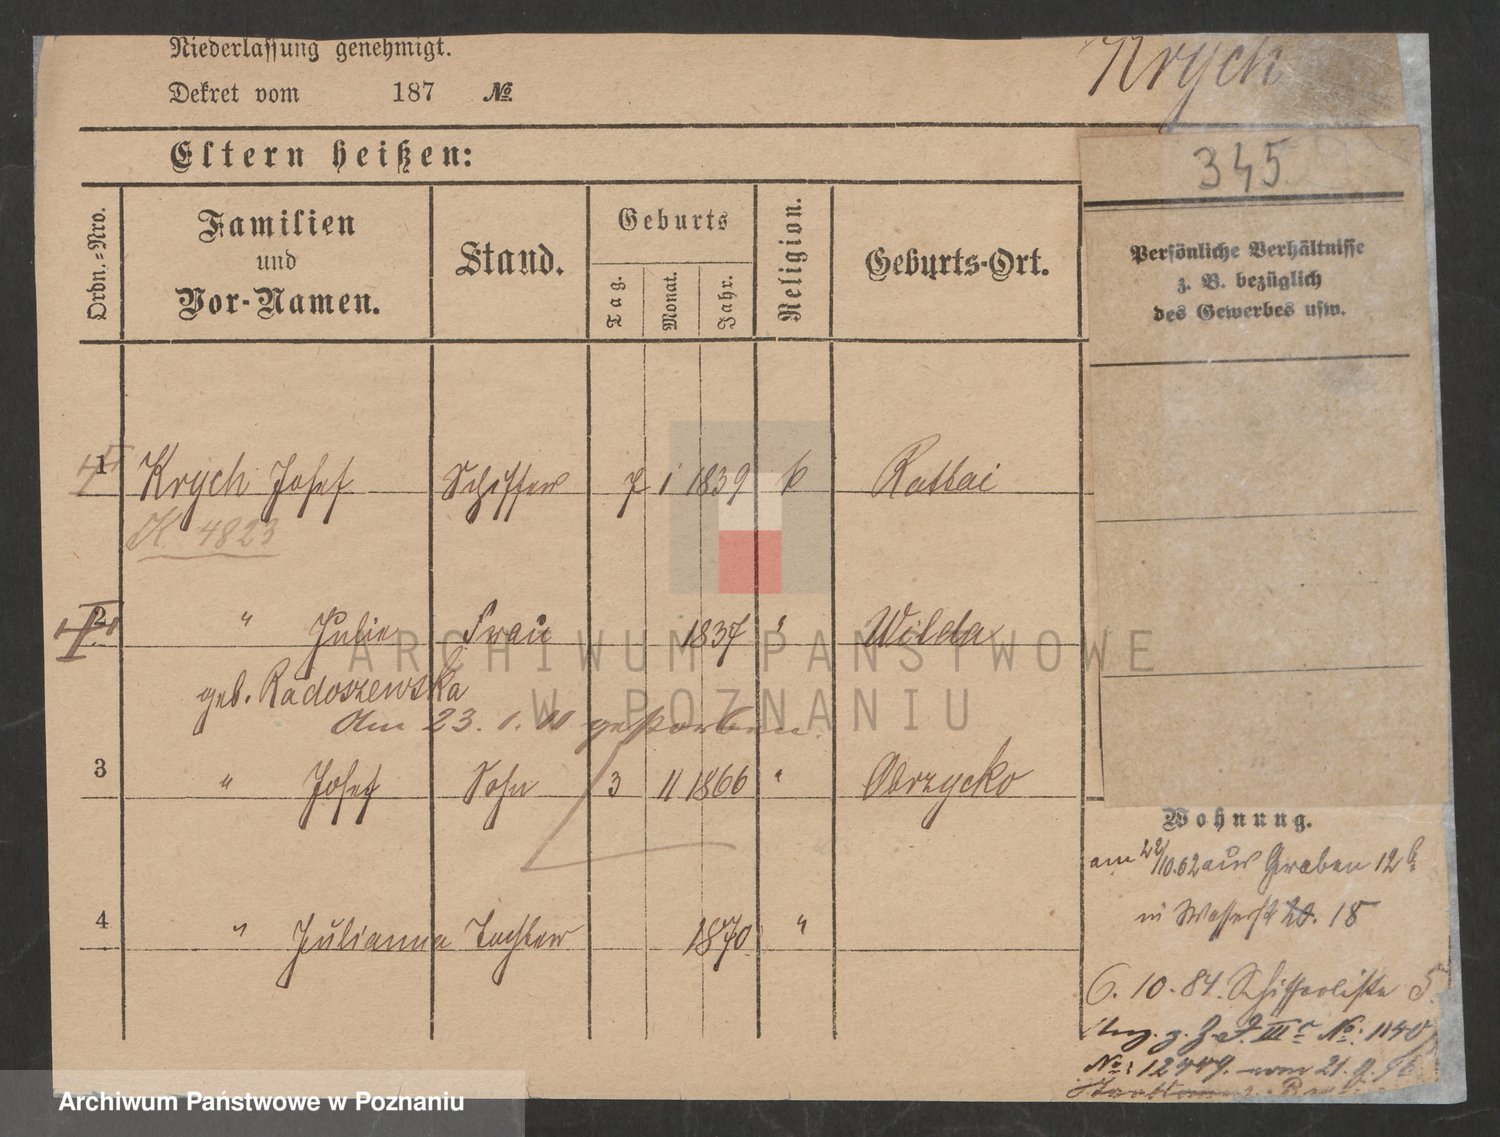 Niederlassung genehmigt.
Dekret vom 187 №
Krych
Eltern heißen:
345
Ordn.=Nro.
Familien
und
Vor-Namen.
Stand.
Geburts
Tag.
Monat.
Jahr.
Religion.
Geburts-Ort.
Persönliche Verhältnisse
z. B. bezüglich
des Gewerbes usw.
1 Krych Josef Schiffer 7 1 1839 k Rattai
K. 4823
2 " Julie Frau 1837 " Wilda
geb. Radoszewska
Am 23. 1. 10 gestorben.
3 " Josef Sohn 3 11 1866 " Obrzycko
4 " Julianna Tochter 1870 "
Wohnung.
am 22/10.62 aus Graben 12 b
in Wasserstr 18
6. 10. 84. Schifferliste 5.
Ang. z. III c No: 1140
No: 12449. vom 21. 9. 96
ARCHIWUM PAŃSTWOWE
W POZNANIU
Archiwum Państwowe w Poznaniu